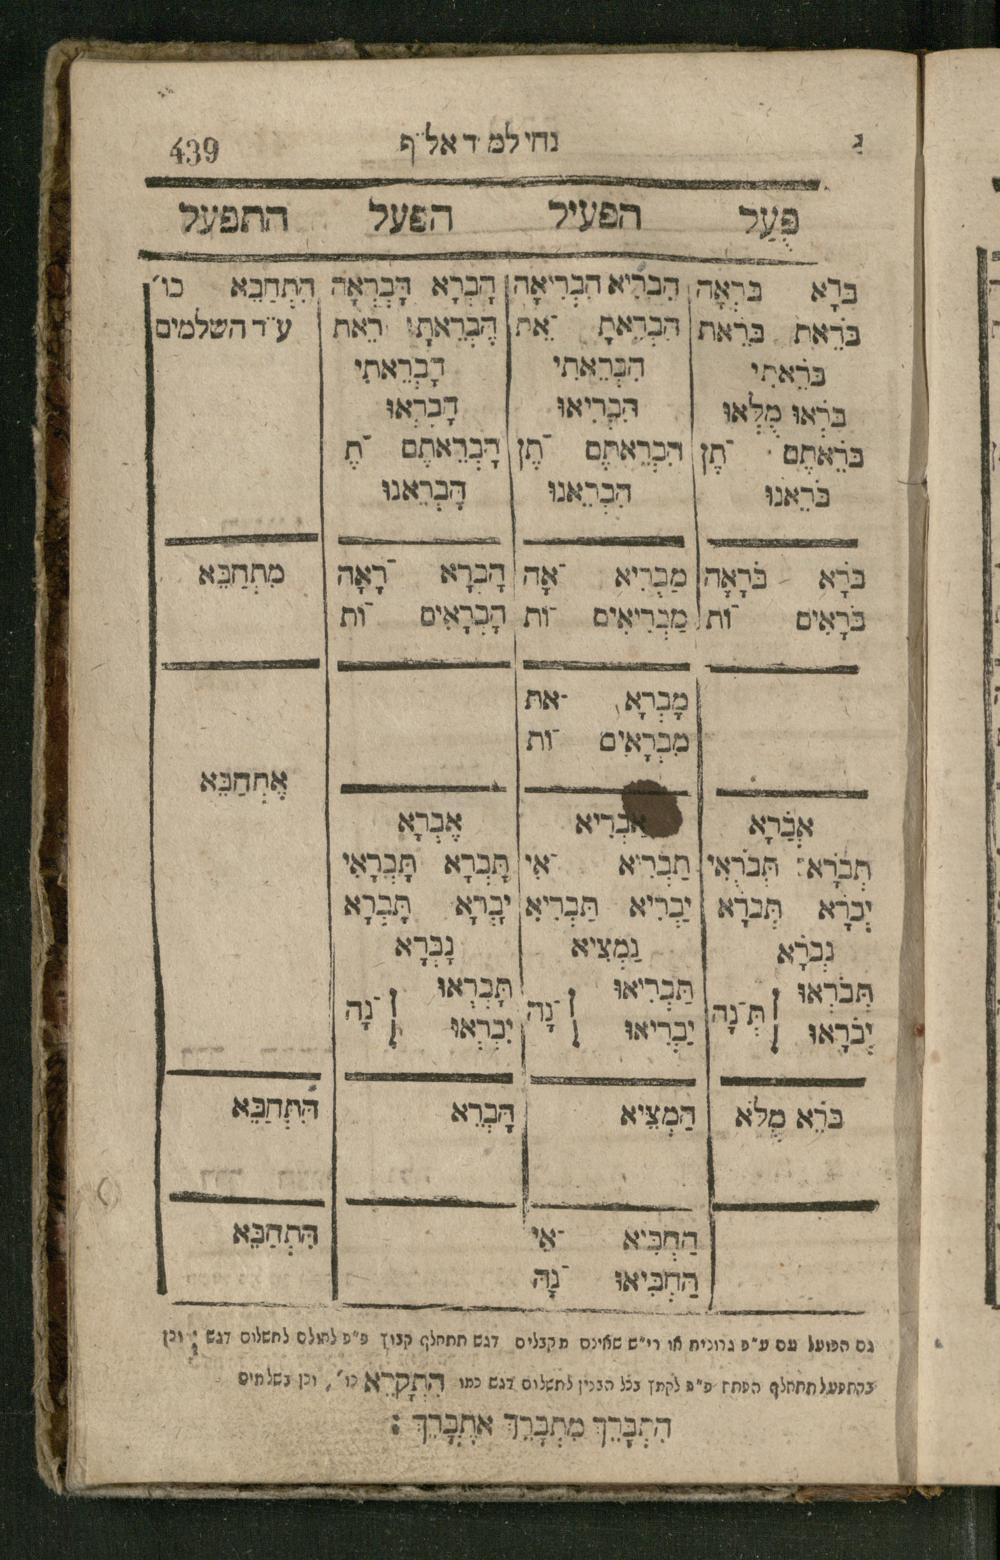 ג נחי למ״ד אל״ף 439
פֻּעַל הפעיל הפעל התפעל
בֹּרָא בֹּרְאָה הִבְרִיא הִבְרִיאָה הָבְרָא הָבְרְאָה הִתְחַבֵּא כו׳
בֹּרֵאתָ בֹּרֵאת הִבְרֵאתָ ־את הָבְרֵאתָ רֵאת ע״ד השלמים
בֹּרֵאתִי הִבְרֵאתִי הָבְרֵאתִי
בֹּרְאוּ מֻלְּאוּ הִבְרִיאוּ הָבְרְאוּ
בֹּרֵאתֶם ־תֶן הִבְרֵאתֶם ־תֶן הָבְרֵאתֶם ־תֶ
בֹּרֵאנוּ הִבְרֵאנוּ הָבְרֵאנוּ
בֹּרָא בֹּרָאָה מַבְרִיא ־אָה הָבְרָא ־רָאָה מִתְחַבֵּא
בֹּרָאִים ־וֹת מַבְרִיאִים ־וֹת הָבְרָאִים ־וֹת
מָבְרָא ־את
מִבְרָאִים ־וֹת
אֶתְחַבֵּא
אֲבֹרָא אַבְרִיא אָבְרָא
תְּבֹרָא תְּבֹרְאִי תַּבְרִיא ־אִי תָּבְרָא תָּבְרָאִי
יְבֹרָא תְּבֹרָא יַבְרִיא תַּבְרִיא יָבְרָא תָּבְרָא
נְבֹרָא נַמְצִיא נָבְרָא
תְּבֹרְאוּ תַּבְרִיאוּ תָּבְרְאוּ
תְּ־נָה ־נָה ־נָה
יְבֹרָאוּ יַבְרִיאוּ יָבְרְאוּ
בֹּרֵא מֻלֹּא הַמְצִיא הָבְרֵא הִתְחַבֵּא
הַחְבִּיא ־אִי הִתְחַבֵּא
הַחְבִּיאוּ ־נָה
גם הפועל עם ע״פ גרונית או רי״ש שאינם מקבלים דגש תתחלף קבוץ פ״פ לחולם לתשלום דגש : וכן
בהתפעל תתחלף הפתח פ״פ לקמץ בכל הבנין לתשלום דגש כמו הִתְקָרֵא כו׳, וכן בשלמים
הִתְבָּרֵךְ מִתְבָּרֵךְ אֶתְבָּרֵךְ :